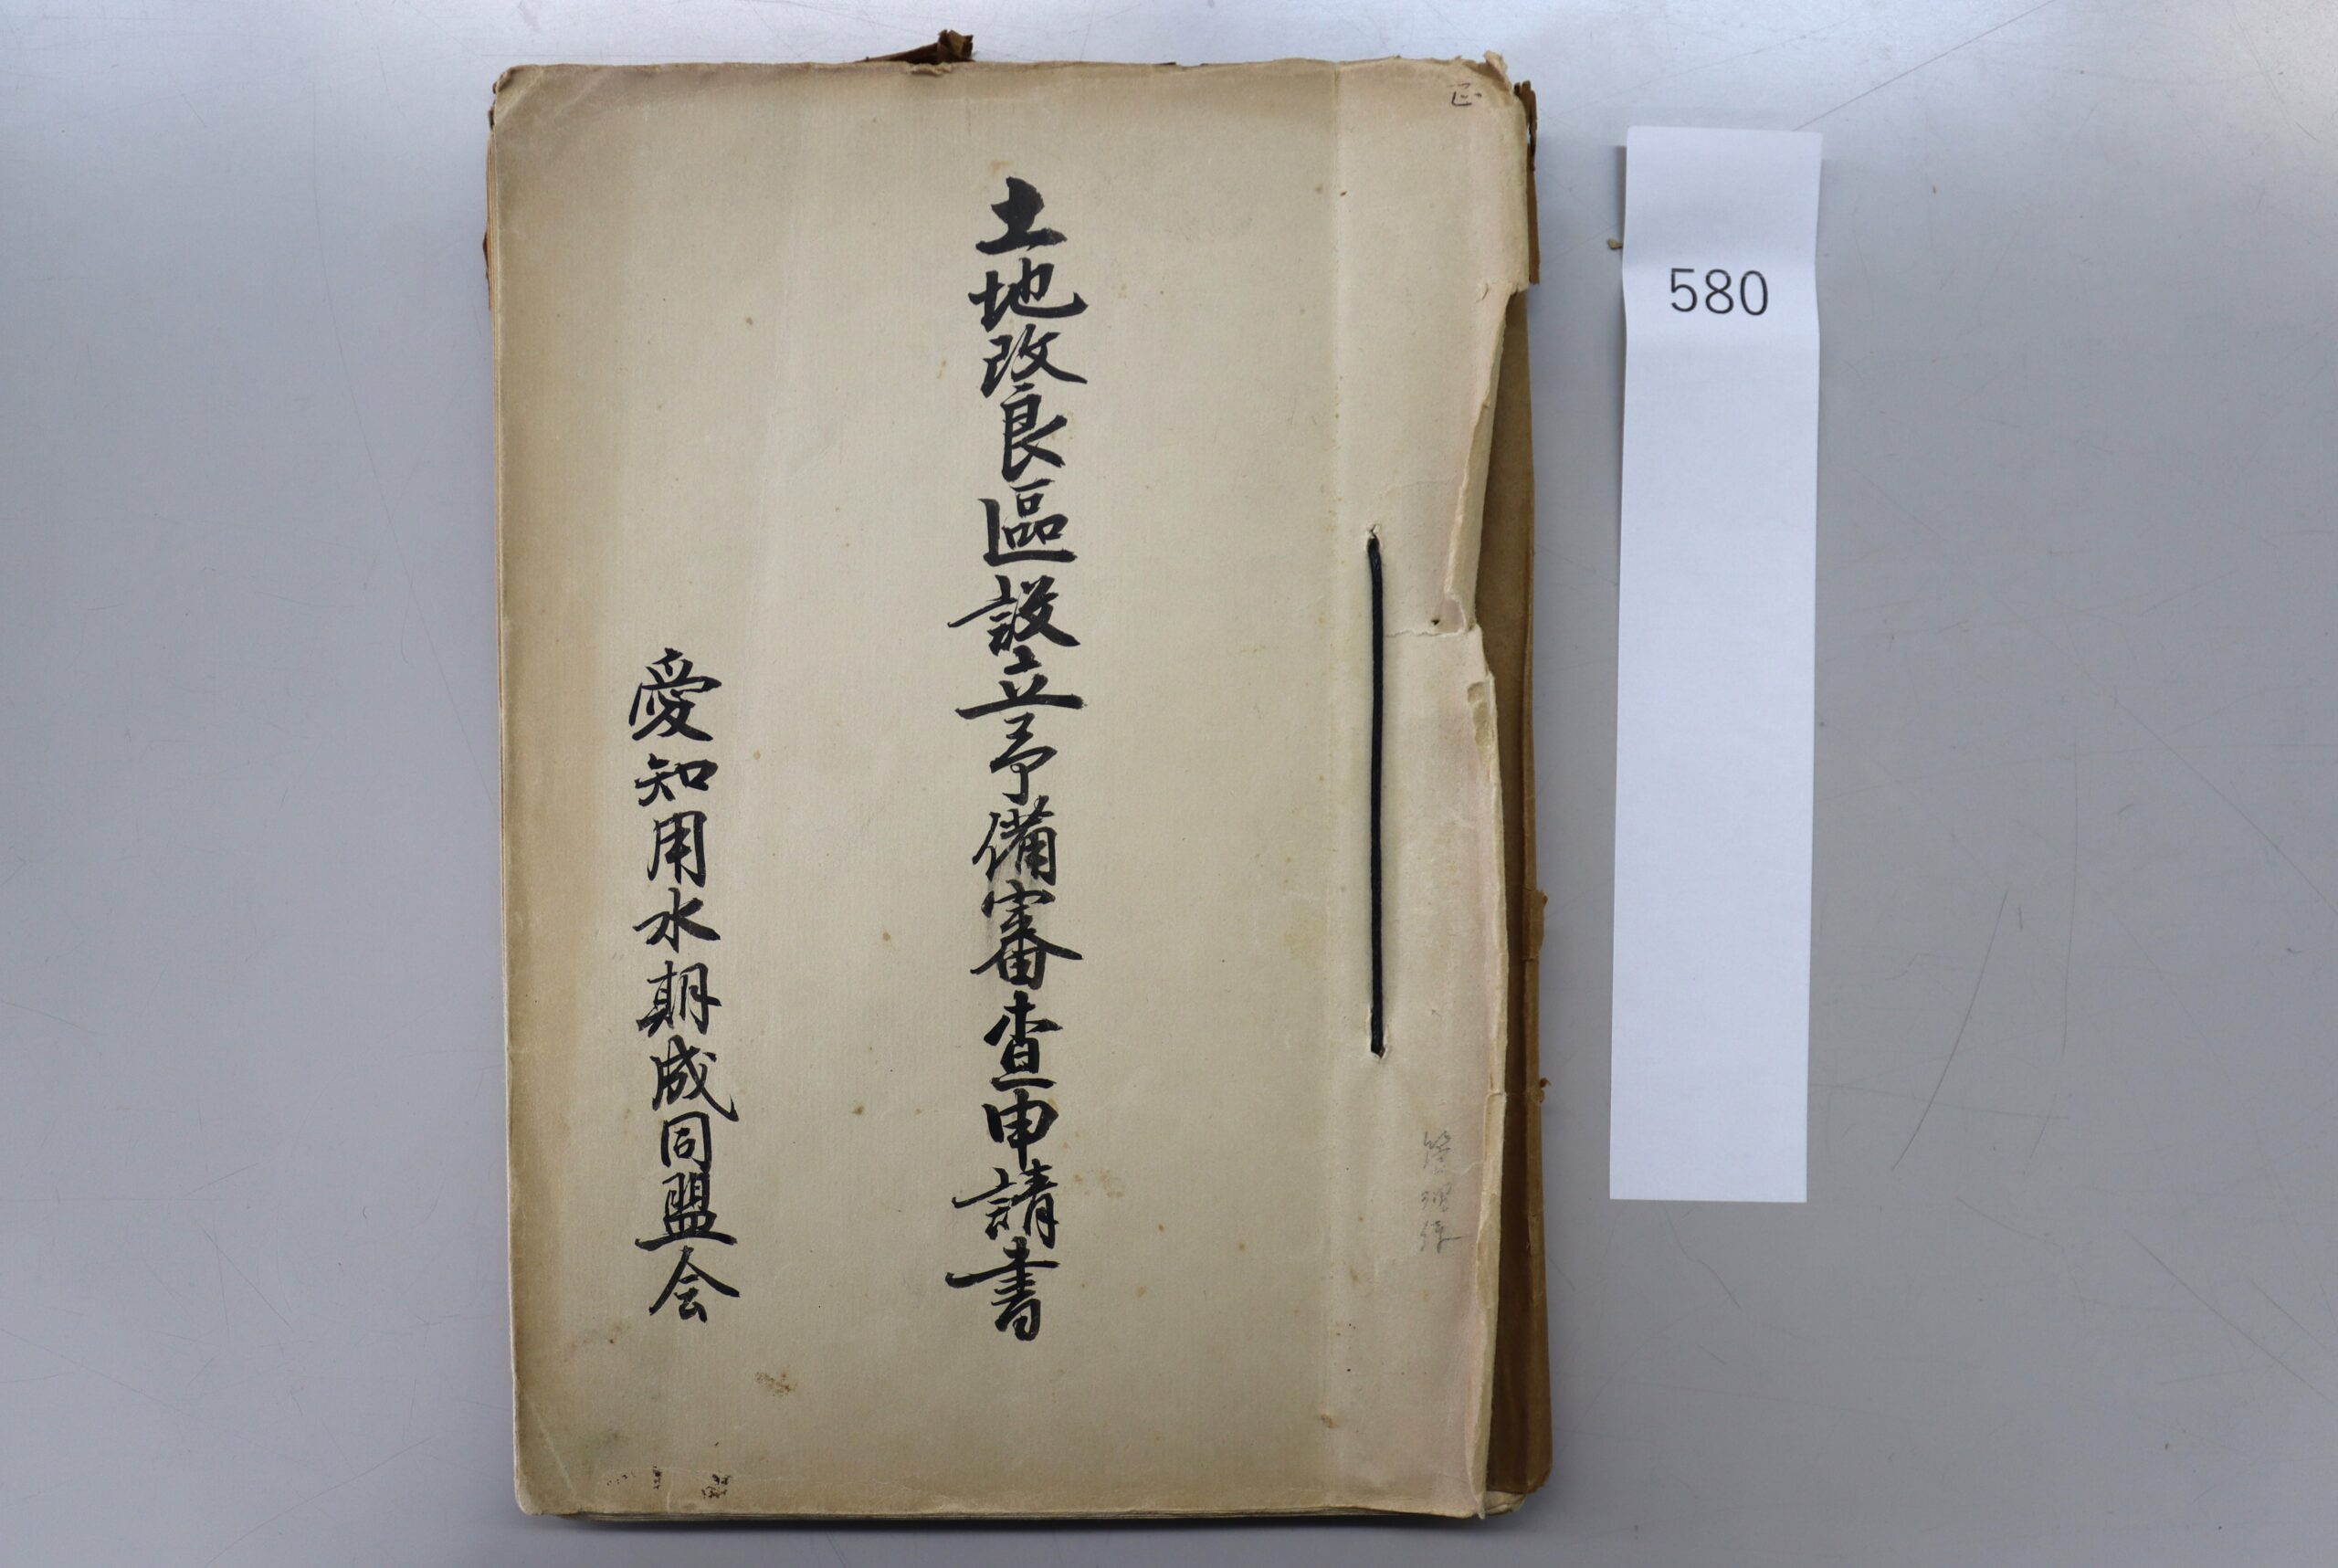 正
土地改良區設立予備審査申請書
愛知用水期成同盟会
管理係
580